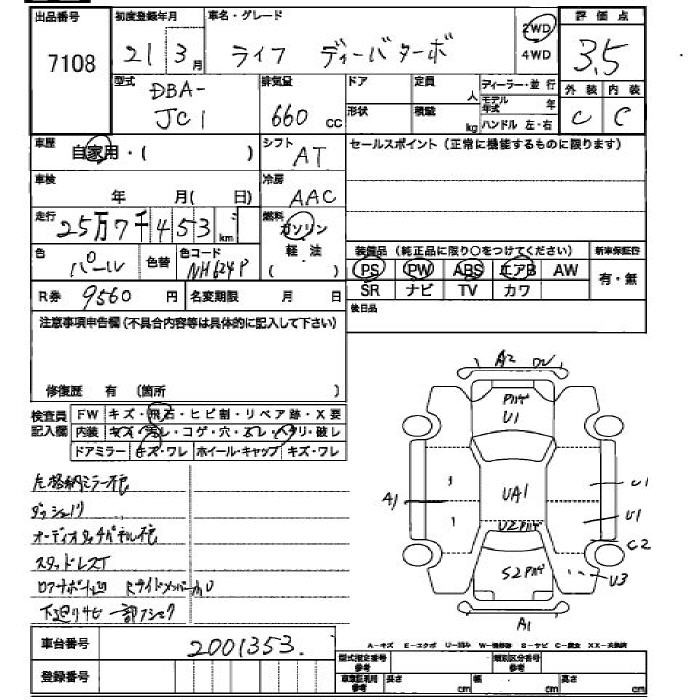 出品番号
7108
初度登録年月
21 3月
車名・グレード
ライフ ディーバターボ
2WD
4WD
評価点
3.5
型式
DBA-
JC1
排気量
660 cc
ドア
形状
定員
人
積載
kg
ディーラー・並 行
モデル年式 年
ハンドル 左・右
外装
C
内装
C
車歴
自家用・( )
シフト
AT
セールスポイント(正常に機能するものに限ります)
車検
年 月( 日)
冷房
AAC
走行
25万7千453 km
燃料
ガソリン
軽・法
( )
色
パール
色替
色コード
NH624P
装備品(純正品に限り○をつけてください)
新車保証書
PS PW ABS エアB AW
有・無
SR ナビ TV カワ
R券 9560 円
名変期限 月 日
後日品
注意事項申告欄(不具合内容等は具体的に記入して下さい)
修復歴 有 (箇所 )
検査員
記入欄
FW キズ・飛石・ヒビ割・リペア跡・X要
内装 キズ・汚レ・コゲ・穴・スレ・ヘタリ・破レ
ドアミラー キズ・ワレ
ホイール・キャップ キズ・ワレ
左格納ミラー不良
オーディオタッチパネル不良
下廻りサビ 一部
A2
U1
A1
UA1
U1
U1
C2
U3
A1
車台番号
2001353.
登録番号
A-キズ E-エクボ U-凹み W-補修跡 S-サビ C-腐食 XX-交換済
型式指定番号
参考
類別区分番号
参考
車庫証明用
参考
長さ cm
幅 cm
高さ cm